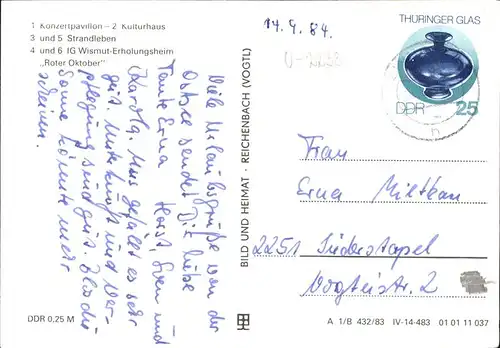 1 Konzertpavillon – 2 Kulturhaus
3 und 5 Strandleben
4 und 6 IG Wismut-Erholungsheim
„Roter Oktober“
Viele Urlaubsgrüße von der
Ostsee sendet Dir liebe
Tante Erna Horst, Sven und
Karola. Uns gefällt es sehr
gut. Unterkunft und Ver-
pflegung sind gut. Bloß die
Sonne könnte mehr
scheinen.
DDR 0,25 M
BILD UND HEIMAT · REICHENBACH (VOGTL)
14.9.84.
THÜRINGER GLAS
DDR 25
Frau
Erna Miltkau
2251 Süderstapel
Vogteistr. 2
A 1/B 432/83 IV-14-483 01 01 11 037